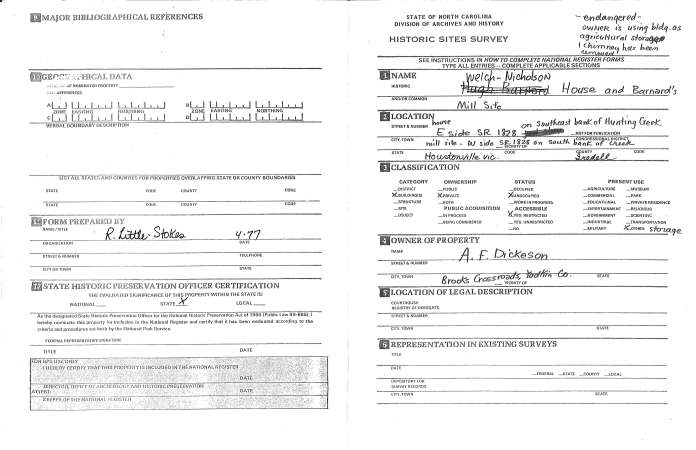 9 MAJOR BIBLIOGRAPHICAL REFERENCES
10 GEOGRAPHICAL DATA
ACREAGE OF NOMINATED PROPERTY
UTM REFERENCES
A B
ZONE EASTING NORTHING ZONE EASTING NORTHING
C D
VERBAL BOUNDARY DESCRIPTION
LIST ALL STATES AND COUNTIES FOR PROPERTIES OVERLAPPING STATE OR COUNTY BOUNDARIES
STATE CODE COUNTY CODE
STATE CODE COUNTY CODE
11 FORM PREPARED BY
NAME/TITLE
R. Little-Stokes 4-77
ORGANIZATION DATE
STREET & NUMBER TELEPHONE
CITY OR TOWN STATE
12 STATE HISTORIC PRESERVATION OFFICER CERTIFICATION
THE EVALUATED SIGNIFICANCE OF THIS PROPERTY WITHIN THE STATE IS:
NATIONAL STATE X LOCAL
As the designated State Historic Preservation Officer for the National Historic Preservation Act of 1966 (Public Law 89-665), I
hereby nominate this property for inclusion in the National Register and certify that it has been evaluated according to the
criteria and procedures set forth by the National Park Service.
FEDERAL REPRESENTATIVE SIGNATURE
TITLE DATE
FOR NPS USE ONLY
I HEREBY CERTIFY THAT THIS PROPERTY IS INCLUDED IN THE NATIONAL REGISTER
DATE
DIRECTOR, OFFICE OF ARCHEOLOGY AND HISTORIC PRESERVATION
ATTEST: DATE
KEEPER OF THE NATIONAL REGISTER
STATE OF NORTH CAROLINA
DIVISION OF ARCHIVES AND HISTORY
HISTORIC SITES SURVEY
-endangered-
owner is using bldg. as
agricultural storage
1 chimney has been
removed
SEE INSTRUCTIONS IN HOW TO COMPLETE NATIONAL REGISTER FORMS
TYPE ALL ENTRIES -- COMPLETE APPLICABLE SECTIONS
1 NAME
Welch-Nicholson
HISTORIC Hugh Barnard House and Barnard's
AND/OR COMMON
Mill Site
2 LOCATION
house on southeast bank of Hunting Creek
STREET & NUMBER E side SR 1828 NOT FOR PUBLICATION
CITY, TOWN CONGRESSIONAL DISTRICT
mill site - W side SR 1828 on south bank of creek
VICINITY OF
STATE CODE COUNTY CODE
Houstonville vic. Iredell
3 CLASSIFICATION
CATEGORY OWNERSHIP STATUS PRESENT USE
DISTRICT PUBLIC OCCUPIED AGRICULTURE MUSEUM
X BUILDING(S) X PRIVATE X UNOCCUPIED COMMERCIAL PARK
STRUCTURE BOTH WORK IN PROGRESS EDUCATIONAL PRIVATE RESIDENCE
SITE PUBLIC ACQUISITION ACCESSIBLE ENTERTAINMENT RELIGIOUS
OBJECT IN PROCESS X YES: RESTRICTED GOVERNMENT SCIENTIFIC
BEING CONSIDERED YES: UNRESTRICTED INDUSTRIAL TRANSPORTATION
NO MILITARY X OTHER: storage
4 OWNER OF PROPERTY
NAME
A. F. Dickeson
STREET & NUMBER
CITY, TOWN STATE
Brooks Crossroads, Yadkin Co.
VICINITY OF
5 LOCATION OF LEGAL DESCRIPTION
COURTHOUSE
REGISTRY OF DEEDS, ETC
STREET & NUMBER
CITY, TOWN STATE
6 REPRESENTATION IN EXISTING SURVEYS
TITLE
DATE
FEDERAL STATE COUNTY LOCAL
DEPOSITORY FOR
SURVEY RECORDS
CITY, TOWN STATE